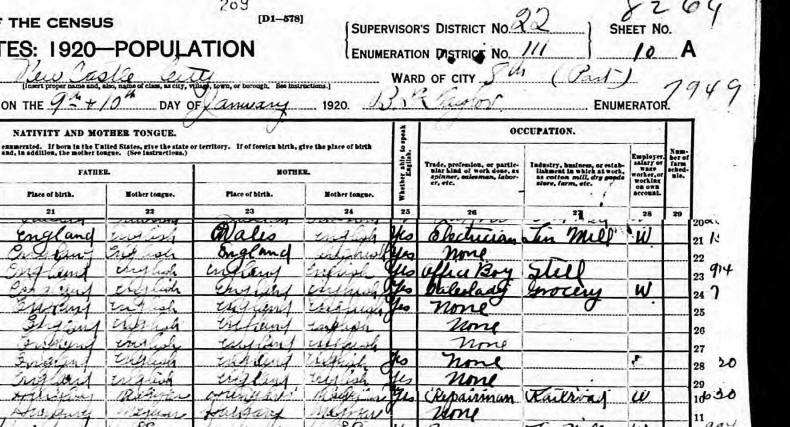 209
8264
F THE CENSUS
[D1—578]
SUPERVISOR'S DISTRICT No. 22
SHEET No.
TES: 1920—POPULATION
ENUMERATION DISTRICT No. 111
10 A
New Castle City
WARD OF CITY 8th (Part)
[Insert proper name and, also, name of class, as city, village, town, or borough. See instructions.]
7949
ON THE 9th + 10th DAY OF January, 1920.
ENUMERATOR.
NATIVITY AND MOTHER TONGUE.
enumerated. If born in the United States, give the state or territory. If of foreign birth, give the place of birth
and, in addition, the mother tongue. (See instructions.)
FATHER.
MOTHER.
Place of birth.
Mother tongue.
Place of birth.
Mother tongue.
Whether able to speak English.
OCCUPATION.
Trade, profession, or particular kind of work done, as spinner, salesman, laborer, etc.
Industry, business, or establishment in which at work, as cotton mill, dry goods store, farm, etc.
Employer, salary or wage worker, or working on own account.
Number of farm schedule.
21 22 23 24 25 26 27 28 29
20
England English Wales English Yes Electrician Tin Mill W 21
England English England English Yes None 22
England English England English Yes Office Boy Still 23 914
England English England English Yes Saleslady Grocery W 24 7
England English England English Yes None 25
England English England English None 26
England English England English None 27
England English England English Yes None 28 20
England English England English Yes None 29
Hungary Magyar Hungary Magyar Yes Repairman Railroad W 10
Hungary Magyar Hungary Magyar None 11